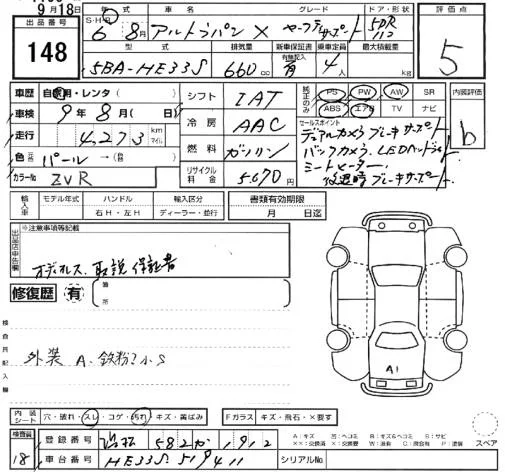 9月18日
出品番号
148
S・H・R
6年8月
車名
アルトラパン X
グレード
セーフティサポート
ドア・形状
5DR
評価点
5
型式
5BA-HE33S
排気量
660
新車保証書
有無記入
有
乗車定員
4人
最大積載量
kg
車歴
自家用・レンタ( )
車検
9年8月( 日)
走行
4,273
km
マイル
色
パール →( 色)
カラーNo
ZVR
シフト
IAT
冷房
AAC
燃料
ガソリン
リサイクル料金
5.670円
純正のみ
PS PW AW SR
ABS エアB TV ナビ
セールスポイント
デュアルカメラブレーキサポート
バックカメラ. LEDヘッドライト
シートヒーター.
後退時ブレーキサポート
内装評価
b
輸入車
モデル年式
ハンドル
右H・左H
輸入区分
ディーラー・並行
書類有効期限
月 日迄
出品店申告欄
※注意事項等記載
オーディオレス. 取説 保証書
修復歴
有
箇所
検査員記入欄
外装 A. 鉄粉
小S
A1
内装シート
穴・破れ・スレ・コゲ・汚れ・キズ・黄ばみ
Fガラス
キズ・飛石・×要す
検査員
18
登録番号
浜松 582 か 1912
車台番号
HE33S-519411
シリアルNo
A：キズ
スペア